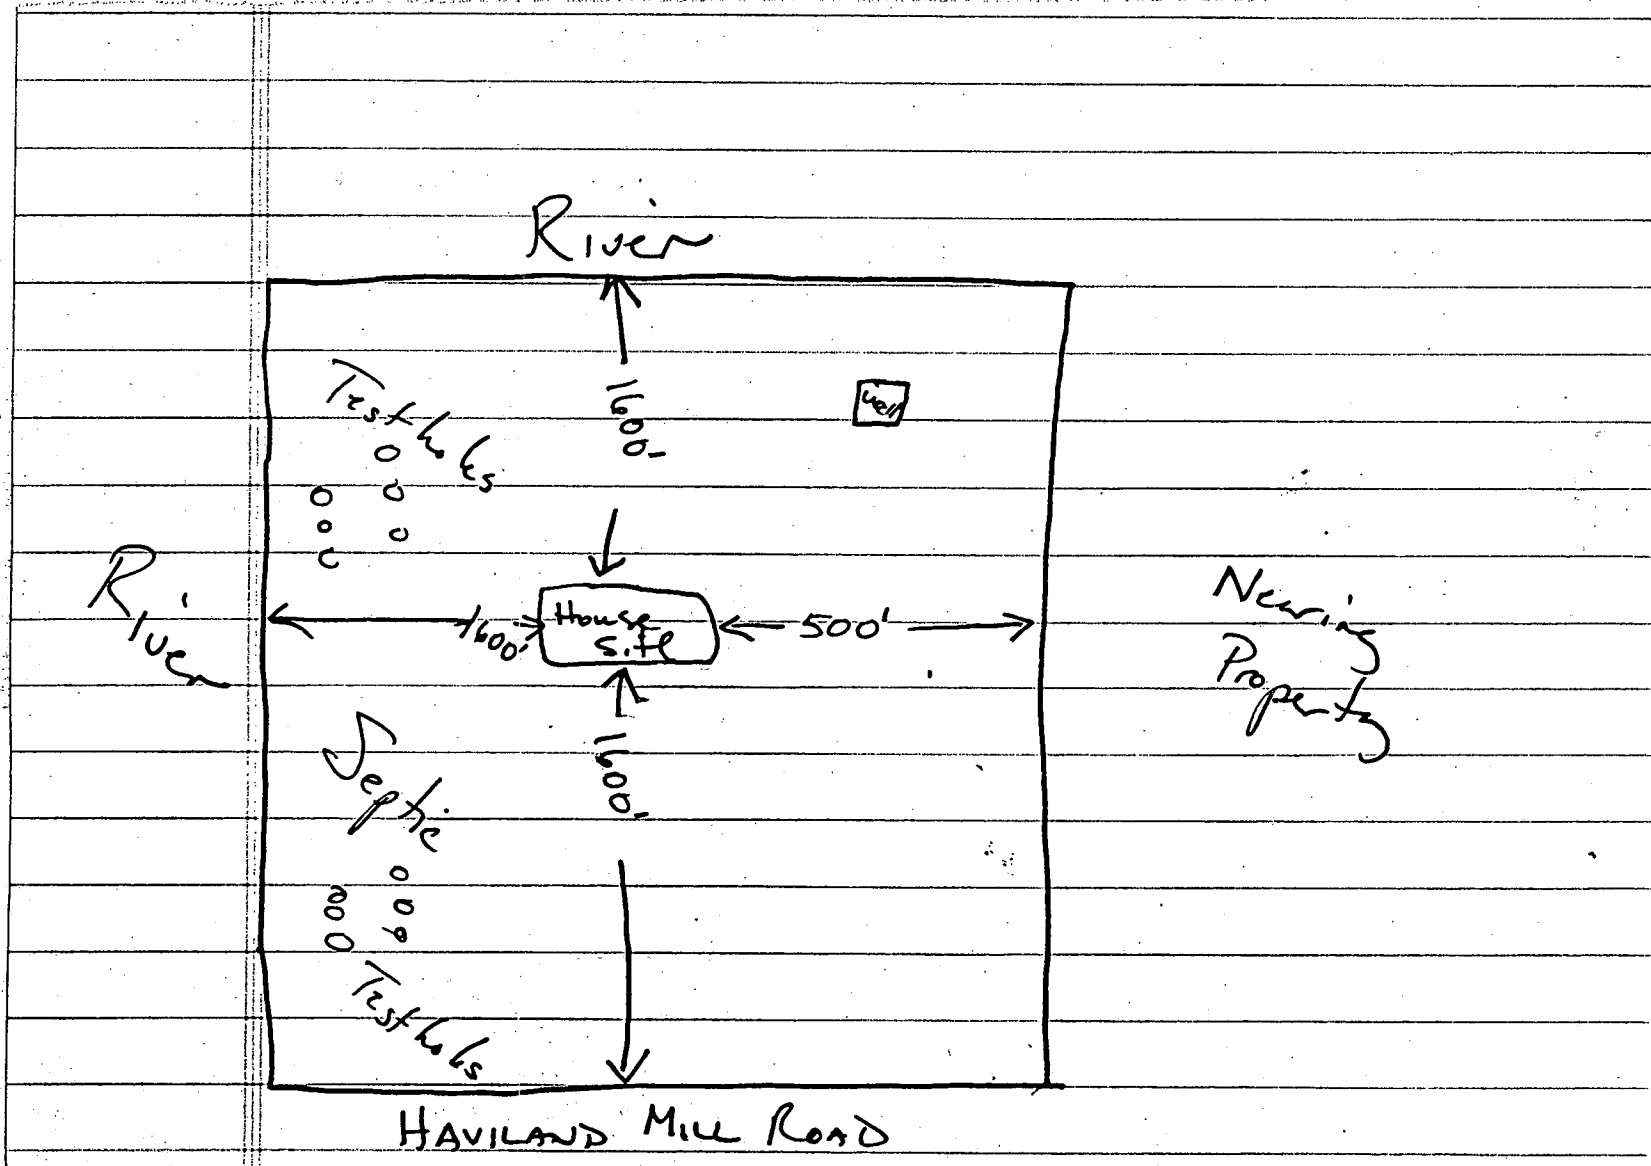 River
Well
Testholes
1600'
River
1600'
House
Site
500'
Nearing
Property
1600'
Septic
Testholes
HAVILAND MILL ROAD